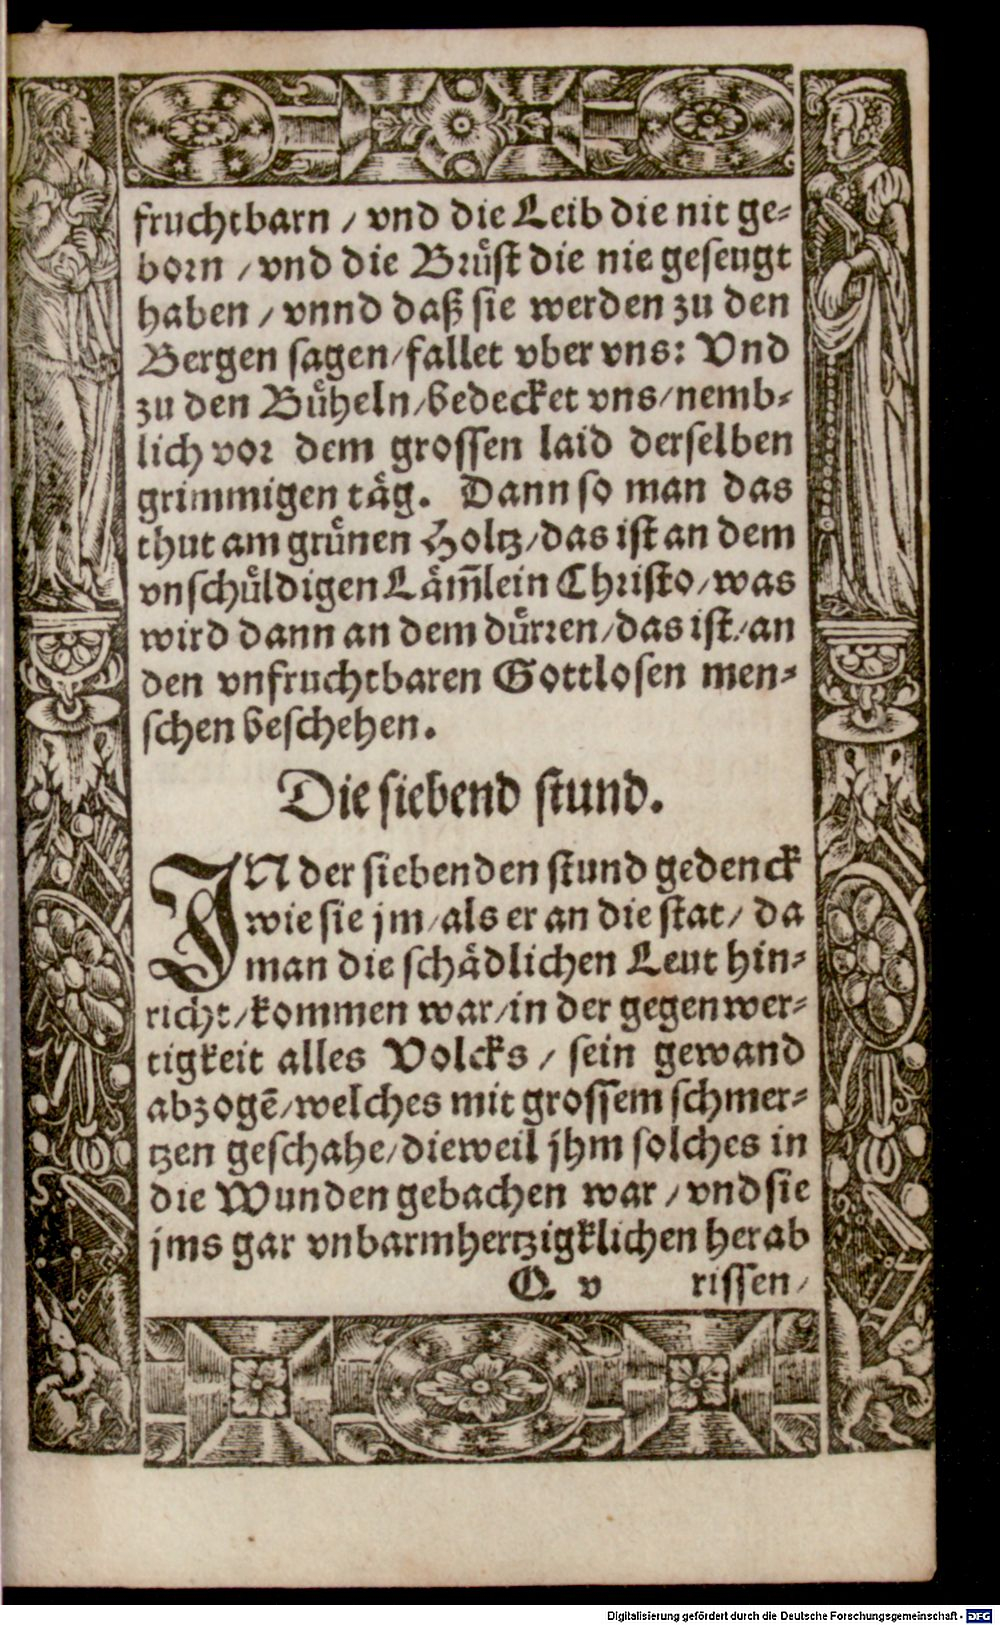 fruchtbarn / vnd die Leib die nit ge⸗
born / vnd die Bruͤst die nie geseugt
haben / vnnd daß sie werden zu den
Bergen sagen / fallet vber vns: Vnd
zu den Buͤheln / bedecket vns / nemb⸗
lich vor dem grossen laid derselben
grimmigen taͤg. Dann so man das
thut am gruͤnen Holtz / das ist an dem
vnschuͤldigen Laͤm̃lein Christo / was
wird dann an dem duͤrren / das ist / an
den vnfruchtbaren Gottlosen men⸗
schen beschehen.
Die siebend stund.
IN der siebenden stund gedenck
wie sie jm / als er an die stat / da
man die schaͤdlichen Leut hin⸗
richt / kommen war / in der gegenwer⸗
tigkeit alles Volcks / sein gewand
abzogē / welches mit grossem schmer⸗
tzen geschahe / dieweil jhm solches in
die Wunden gebachen war / vnd sie
jms gar vnbarmhertzigklichen herab
Q v rissen /
Digitalisierung gefördert durch die Deutsche Forschungsgemeinschaft - DFG